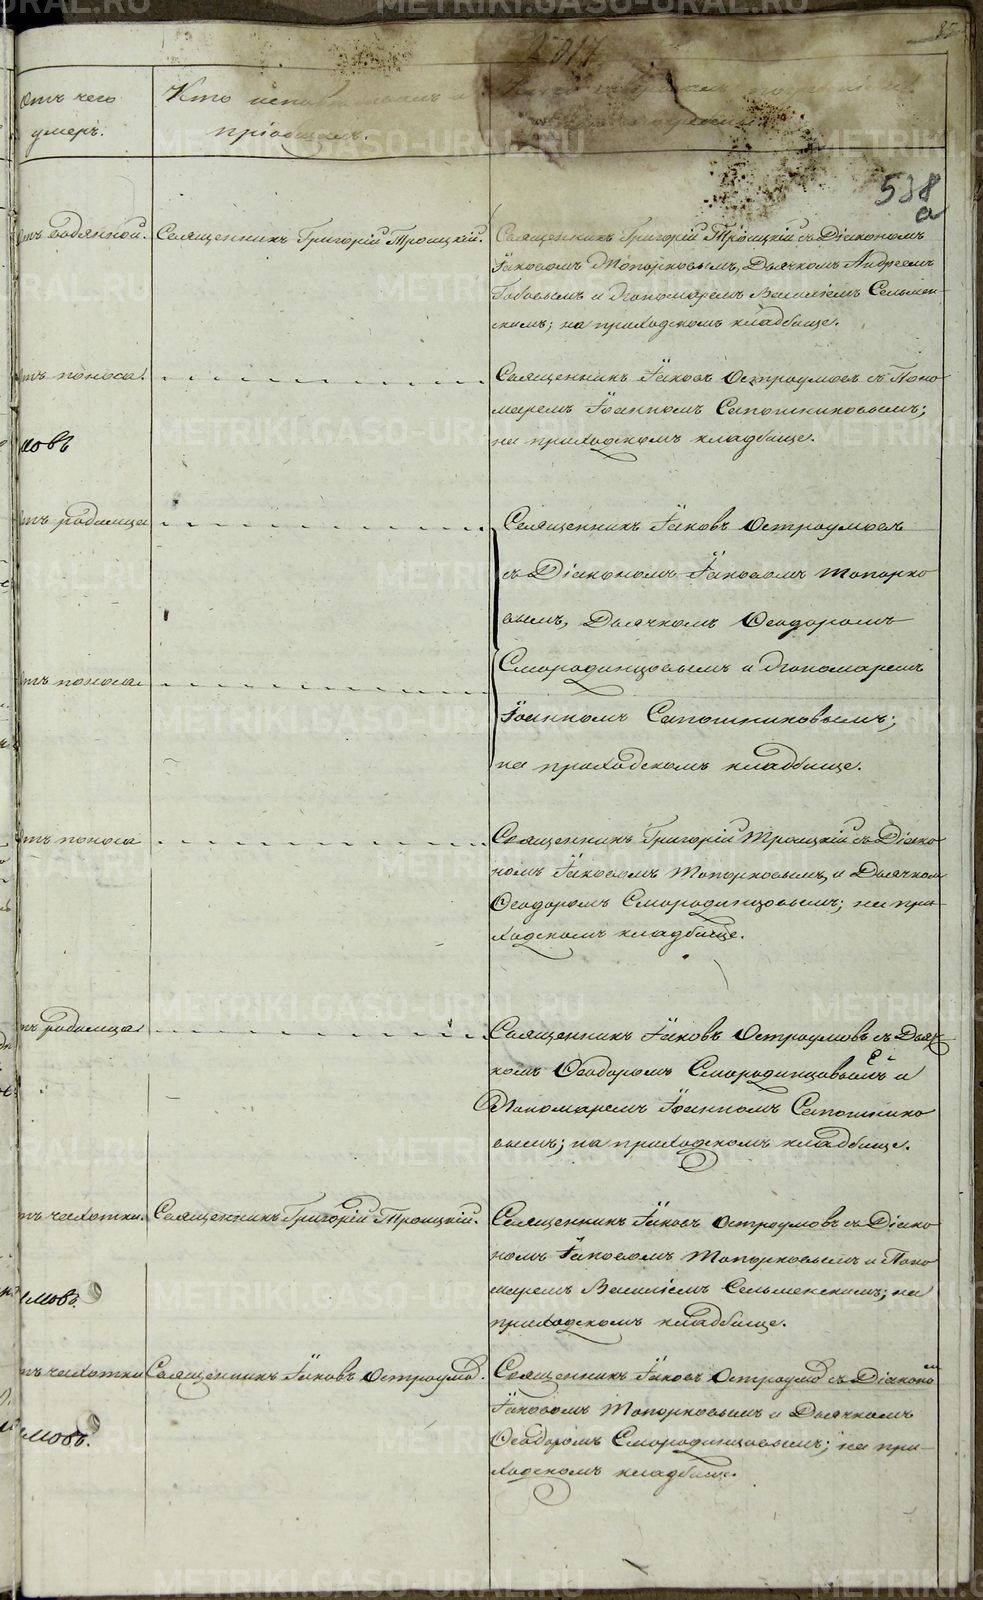 85
538
а
Отъ чего
умеръ.
Кто исповѣдывалъ и
пріобщалъ.
отъ водянной.
Священникъ Григорій Троицкій.
Священникъ Григорій Троицкій съ Діакономъ
Іаковомъ Топорковымъ, Дьячкомъ Андреемъ
и Пономаремъ Василіемъ Сельмен-
скимъ; на приходскомъ кладбище.
отъ поноса.
Священникъ Іаковъ Остроумовъ съ Поно
маремъ Іоанномъ Сапожниковымъ;
на приходскомъ кладбище.
мовъ
отъ родимца
Священникъ Іаковъ Остроумовъ
съ Діакономъ Іаковомъ Топорко
вымъ, Дьячкомъ Ѳеодоромъ
отъ поноса
Смородинцовымъ и Пономаремъ
Іоанномъ Сапожниковымъ;
на приходскомъ кладбище.
отъ поноса
Священникъ Григорій Троицкій съ Діако
номъ Іаковомъ Топорковымъ, и Дьячкомъ
Ѳеодоромъ Смородинцовымъ; на при-
ходскомъ кладбище.
отъ родимца
Священникъ Іаковъ Остроумовъ съ Дьяч
комъ Ѳеодоромъ Смородинцовымъ и
Пономаремъ Іоанномъ Сапожнико
вымъ; на приходскомъ кладбище.
тъ чахотки.
Священникъ Григорій Троицкій.
Священникъ Іаковъ Остроумовъ съ Діако
номъ Іаковомъ Топорковымъ и Поно
маремъ Василіемъ Сельменскимъ; на
приходскомъ кладбище.
мовъ.
тъ чахотки
Священникъ Іаковъ Остроумов.
Священникъ Іаковъ Остроумов съ Діакономъ
Іаковомъ Топорковымъ и Дьячкомъ
Ѳеодоромъ Смородинцовымъ; на при-
ходскомъ кладбище.
мовъ.
METRIKI.GASO-URAL.RU